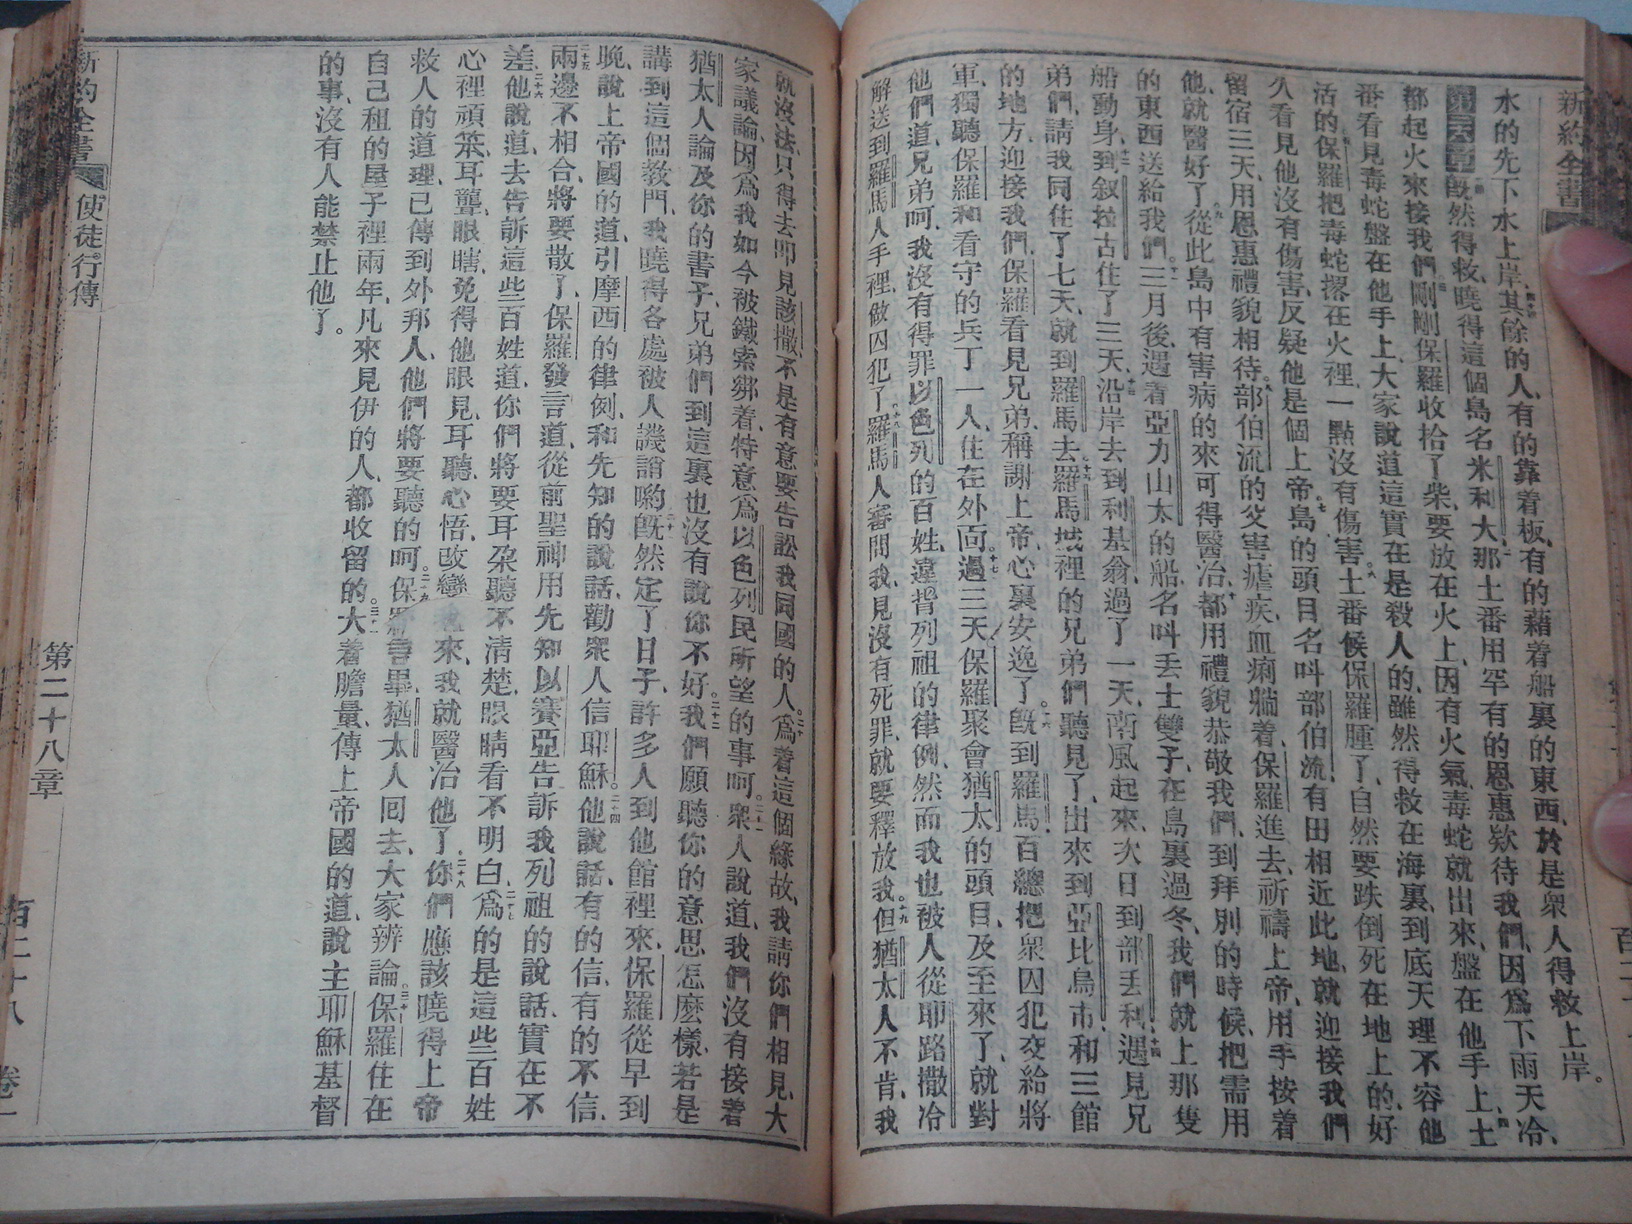 新約全書
水的先下水上岸、其餘的人、有的靠着板、有的藉着船裏的東西、於是衆人得救上岸。
旣然得救、曉得這個島名米利大、那土番用罕有的恩惠欵待我們、因爲下雨天冷、
都起火來接我們、剛剛保羅收拾了柴、要放在火上、因有火氣、毒蛇就出來、盤在他手上、土
番看見毒蛇盤在他手上、大家說道、這實在是殺人的、雖然得救在海裏、到底天理不容他
活的、保羅把毒蛇撂在火裡、一點沒有傷害、土番候保羅腫了、自然要跌倒死在地上的、好
久看見他沒有傷害、反疑他是個上帝、島的頭目名呌部伯流、有田相近此地、就迎接我們
留宿三天、用恩惠禮貌相待、部伯流的父害瘧疾、血痢躺着、保羅進去、祈禱上帝、用手按着
他、就醫好了、從此島中有害病的來、可得醫治、都用禮貌恭敬我們、到拜別的時候、把需用
的東西送給我們、三月後、遇着亞力山太的船、名呌丢士雙子、在島裏過冬、我們就上那隻
船動身、到叙拉古住了三天、沿岸去到利基翁、過了一天、南風起來、次日到部丢利、遇見兄
弟們、請我同住了七天、就到羅馬去、羅馬城裡的兄弟們聽見了、出來到亞比烏市、和三館
的地方、迎接我們、保羅看見兄弟、稱謝上帝、心裏安逸了、旣到羅馬、百總把衆囚犯交給將
軍、獨聽保羅和看守的兵丁一人、住在外面、過三天、保羅聚會猶太的頭目、及至來了、就對
他們道、兄弟呵、我沒有得罪以色列的百姓、違揹列祖的律例、然而我也被人從耶路撒冷
解送到羅馬人手裡、做囚犯了、羅馬人審問我、見沒有死罪、就要釋放我、但猶太人不肯、我
就沒法、只得去叩見該撒、不是有意要告訟我同國的人、爲着這個緣故、我請你們相見、大
家議論、因爲我如今被鐵索綁着、特意爲以色列民所望的事呵、衆人說道、我們沒有接着
猶太人論及你的書子、兄弟們到這裏、也沒有說你不好、我們願聽你的意思怎麽樣、若是
講到這個教門、我曉得各處被人譏誚喲、旣然定了日子、許多人到他館裡來、保羅從早到
晚、說上帝國的道、引摩西的律例、和先知的說話、勸衆人信耶穌。他說話、有的信、有的不信、
兩邊不相合、將要散了、保羅發言道、從前聖神用先知以賽亞告訴我列祖的說話、實在不
差、他說道、去告訴這些百姓道、你們將要耳朶聽不清楚、眼睛看不明白、爲的是這些百姓
心裡頑笨、耳聾、眼瞎、免得他眼見、耳聽、心悟、改變 來、我就醫治他了、你們應該曉得上帝
救人的道理、已傳到外邦人、他們將要聽的呵。保羅言畢、猶太人回去、大家辨論、保羅住在
自己租的屋子裡兩年、凡來見伊的人、都收留的、大着膽量、傳上帝國的道、說主耶穌基督
的事、沒有人能禁止他了。
新約全書 使徒行傳 第二十八章 百二十八 卷一